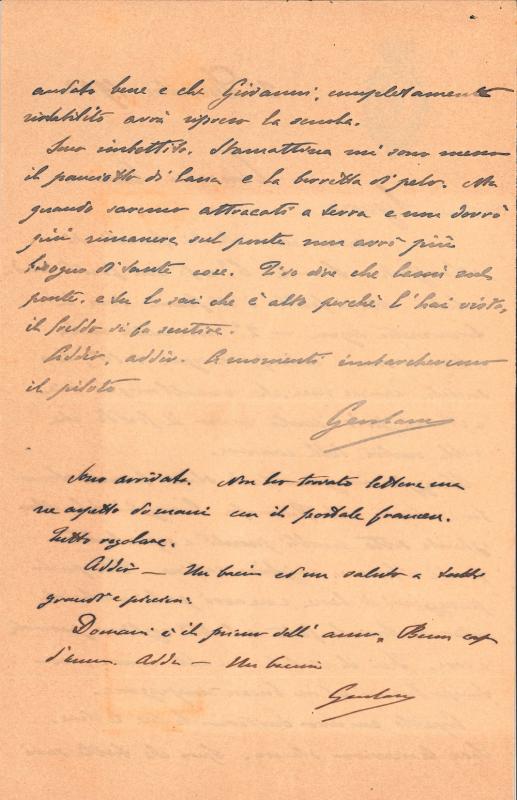 andato bene e che Giovanni, completamente
ristabilito avrà ripreso la scuola.
Sono imbottito. Stamattina mi sono messo
il panciotto di lana e la berretta di pelo. Ma
quando saremo attraccati a terra e non dovrò
più rimanere sul ponte non avrò più
bisogno di tante cose. Ti so dire che lassù sul
ponte, e tu lo sai che è alto perchè l'hai visto,
il freddo si fa sentire.
Addio, addio. A momenti imbarcheremo
il piloto
Sono arrivato. Non ho trovato lettere ma
ne aspetto domani con il postale francese.
Tutto regolare.
Addio — Un bacio ed un saluto a tutti
grandi e piccini.
Domani è il primo dell'anno. Buon capo
d'anno. Addio — Un bacio